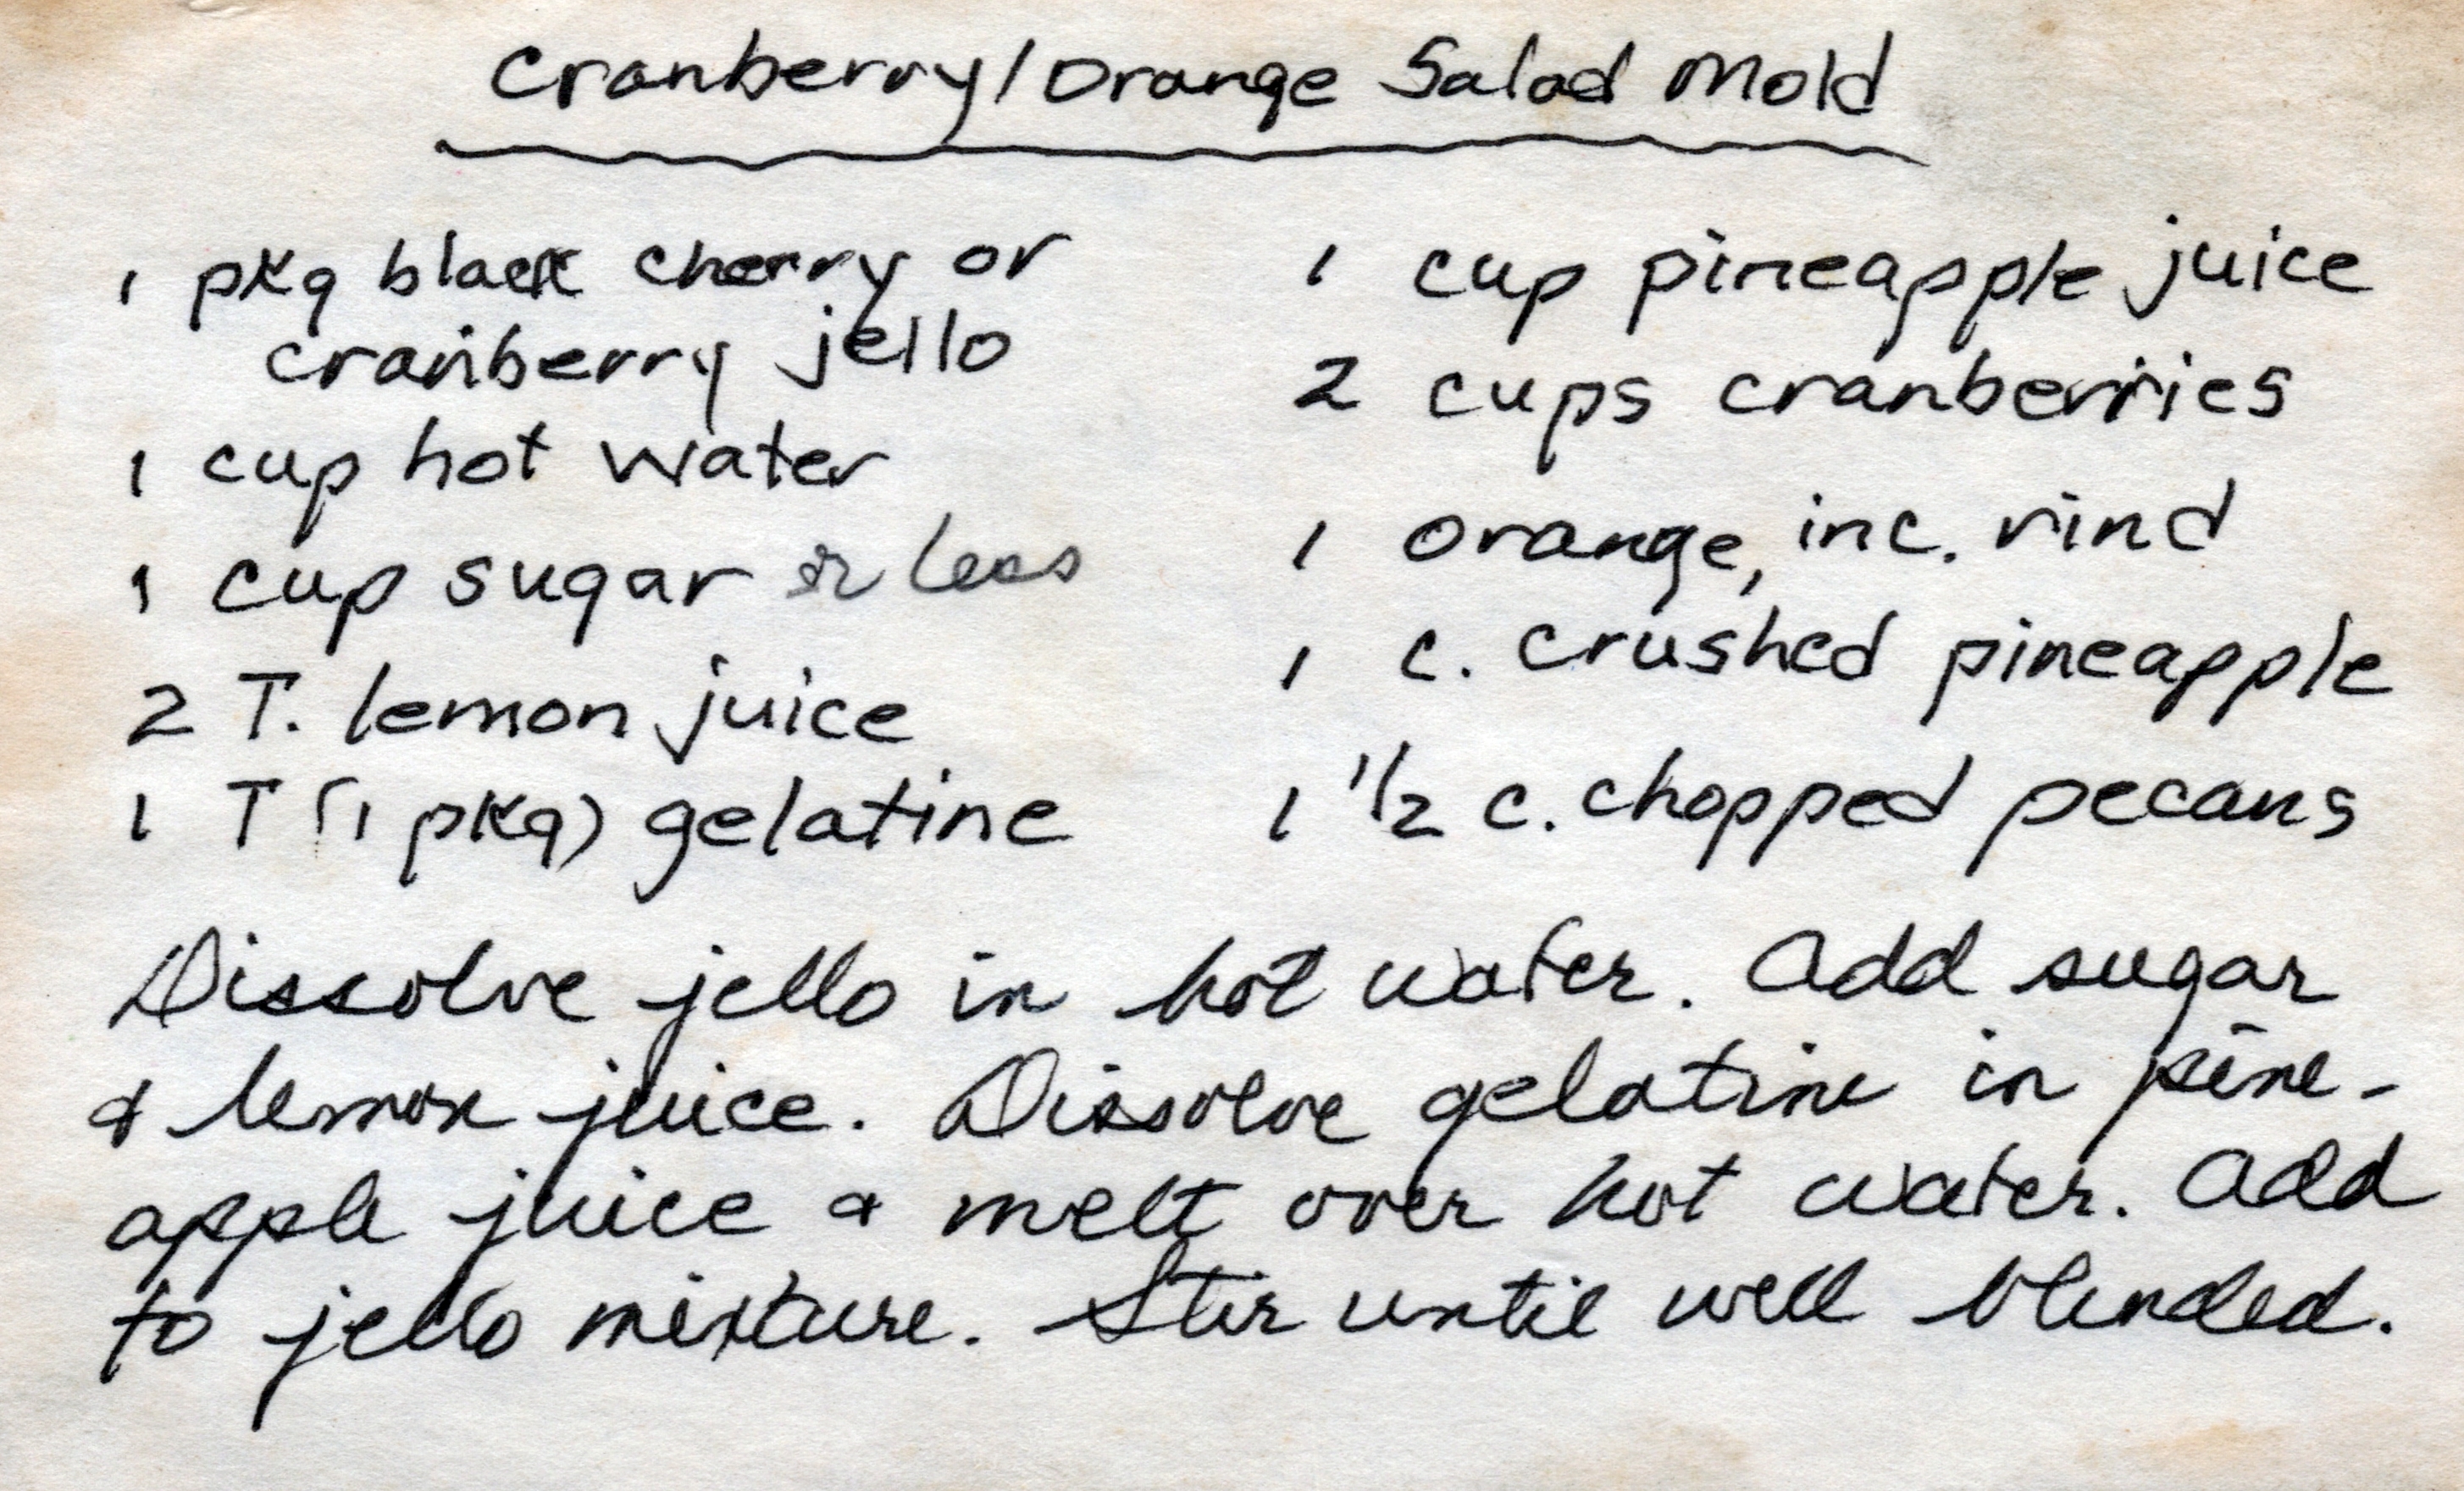 Cranberry/Orange Salad Mold
1 pkg black cherry or
cranberry jello
1 cup hot water
1 cup sugar or less
2 T. lemon juice
1 T (1 pkg) gelatine
1 cup pineapple juice
2 cups cranberries
1 orange, inc. rind
1 c. crushed pineapple
1 1/2 c. chopped pecans
Dissolve jello in hot water. Add sugar
& lemon juice. Dissolve gelatine in pine-
apple juice & melt over hot water. Add
to jello mixture. Stir until well blended.